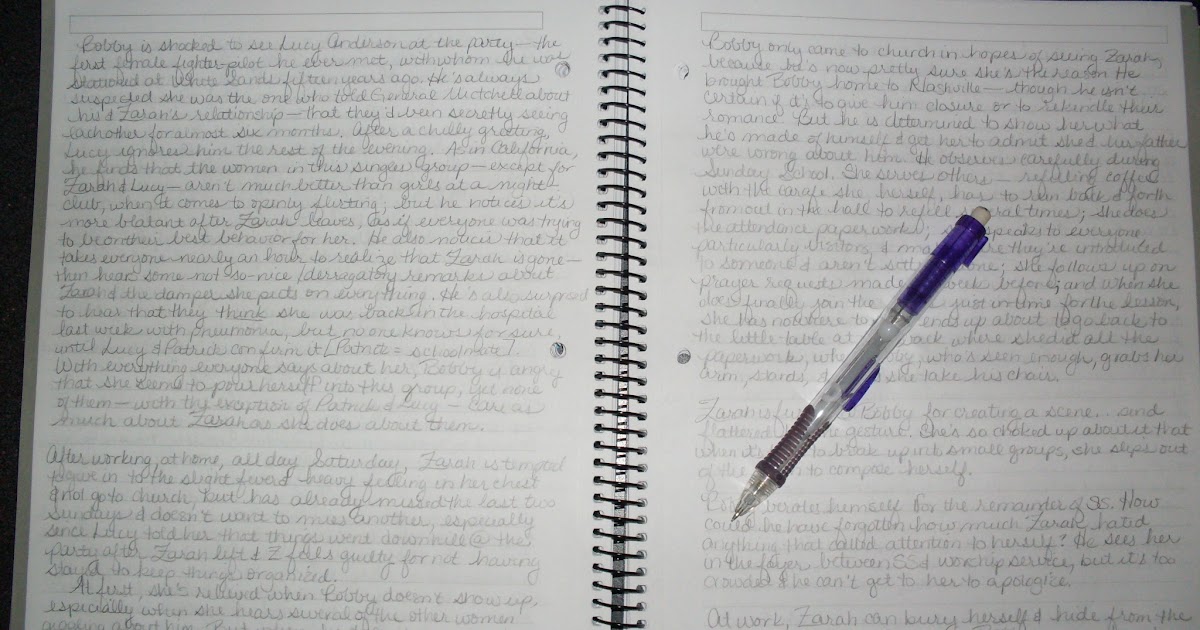 Bobby is shocked to see Lucy Anderson at the party—the
first female fighter pilot he ever met, with whom he was
stationed at White Sands fifteen years ago. He's always
suspected she was the one who told General Mitchell about
his & Zarah's relationship—that they'd been secretly seeing
each other for almost six months. After a chilly greeting,
Lucy ignores him the rest of the evening. As in California,
he finds that the women in this singles group—except for
Zarah & Lucy—aren't much better than girls at a night
club, when it comes to openly flirting; but he notices it's
more blatant after Zarah leaves, as if everyone was trying
to be on their best behavior for her. He also notices that it
takes everyone nearly an hour to realize that Zarah is gone—
then hears some not-so-nice/derogatory remarks about
Zarah & the damper she puts on everything. He's also surprised
to hear that they think she was back in the hospital
last week with pneumonia, but no one knows for sure,
until Lucy & Patrick confirm it [Patrick = schoolmate].
With everything everyone says about her, Bobby is angry
that she seems to pour herself into this group, yet none
of them—with the exception of Patrick & Lucy—care as
much about Zarah as she does about them.
After working, at home, all day Saturday, Zarah is tempted
to give in to the slight fever & heavy feeling in her chest
& not go to church, but has already missed the last two
Sundays & doesn't want to miss another, especially
since Lucy told her that things went downhill @ the
party after Zarah left & Z feels guilty for not having
stayed to keep things organized.
At first, she's relieved when Bobby doesn't show up,
especially when she hears several of the other women
giggling about him. But
Bobby only came to church in hopes of seeing Zarah,
because he's now pretty sure she's the reason He
brought Bobby home to Nashville—though he isn't
certain if it's to give him closure or to rekindle their
romance. But he is determined to show her what
he's made of himself & get her to admit she & her father
were wrong about him. He observes carefully during
Sunday School. She serves others—refilling coffee
with the carafe she, herself, has to run back & forth
from out in the hall to refill several times; she does
the attendance paperwork; speaks to everyone
particularly visitors, & ma re they're introduced
to someone & aren't sitt ne; she follows up on
prayer requests made week before; and when she
does finally join the just in time for the lesson,
she has nowhere to ends up about to go back to
the little table at back where she did all the
paperwork, wh by, who's seen enough, grabs her
arm, stands, & she take his chair.
Zarah is fu Bobby for creating a scene... and
flattered e gesture. She's so choked up about it that
when it's to break up into small groups, she slips out
of the to compose herself.
berates himself for the remainder of SS. How
could he have forgotten how much Zarah hated
anything that called attention to herself? He sees her
in the foyer between SS & worship service, but it's too
crowded & he can't get to her to apologize.
At work, Zarah can bury herself & hide from the